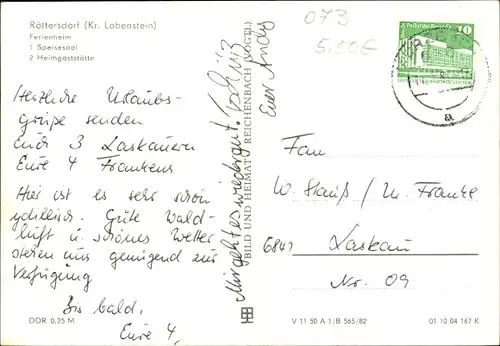 Röttersdorf (Kr. Lobenstein)
Ferienheim
1 Speisesaal
2 Heimgaststätte
Herzliche Urlaubs-
grüße senden
Euch 3 Laskauern
Eure 4 Frankens
Hier ist es sehr schön
ydillisch. Gute Wald-
luft u. schönes Wetter
stehen uns genügend zur
Verfügung
Bis bald.
Eure 4,
DDR 0,25 M
Mir geht es wieder gut.
Euer Andy
BILD UND HEIMAT REICHENBACH (VOGTL)
V 11 50 A 1/B 565/82
073
5,50€
10
a
Fam
W. Strauß / U. Franke
6841 Laskau
Nr. 09
01 10 04 167 K